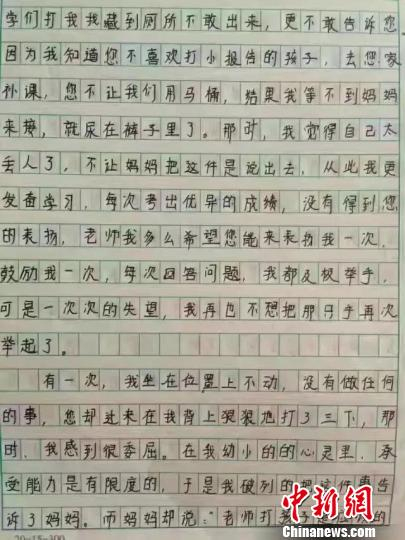 学们打我我藏到厕所不敢出来,更不敢告诉您.
因为我知道您不喜欢打小报告的孩子,去您家
补课,您不让我们用马桶,结果我等不到妈妈
来接,就尿在裤子里了。那时,我觉得自己太
丢人了,不让妈妈把这件是说出去,从此我更
发奋学习,每次考出优异的成绩,没有得到您
的表扬,老师我多么希望您能来表扬我一次,
鼓励我一次,每次回答问题,我都及极举手,
可是一次次的失望,我再也不想把那只手再次
举起了。
有一次,我坐在位置上不动,没有做任何
的事,您却进来在我背上狠狠地打了三下,那
时,我感到很委屈。在我幼小的的心灵里,承
受能力是有限度的,于是我破列的把这件事告
诉了妈妈。而妈妈却说:"老师打孩子是
的
20×15=300
中新网
Chinanews.com